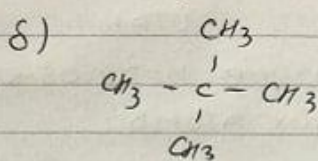 δ)
CH3
CH3 - C - CH3
CH3